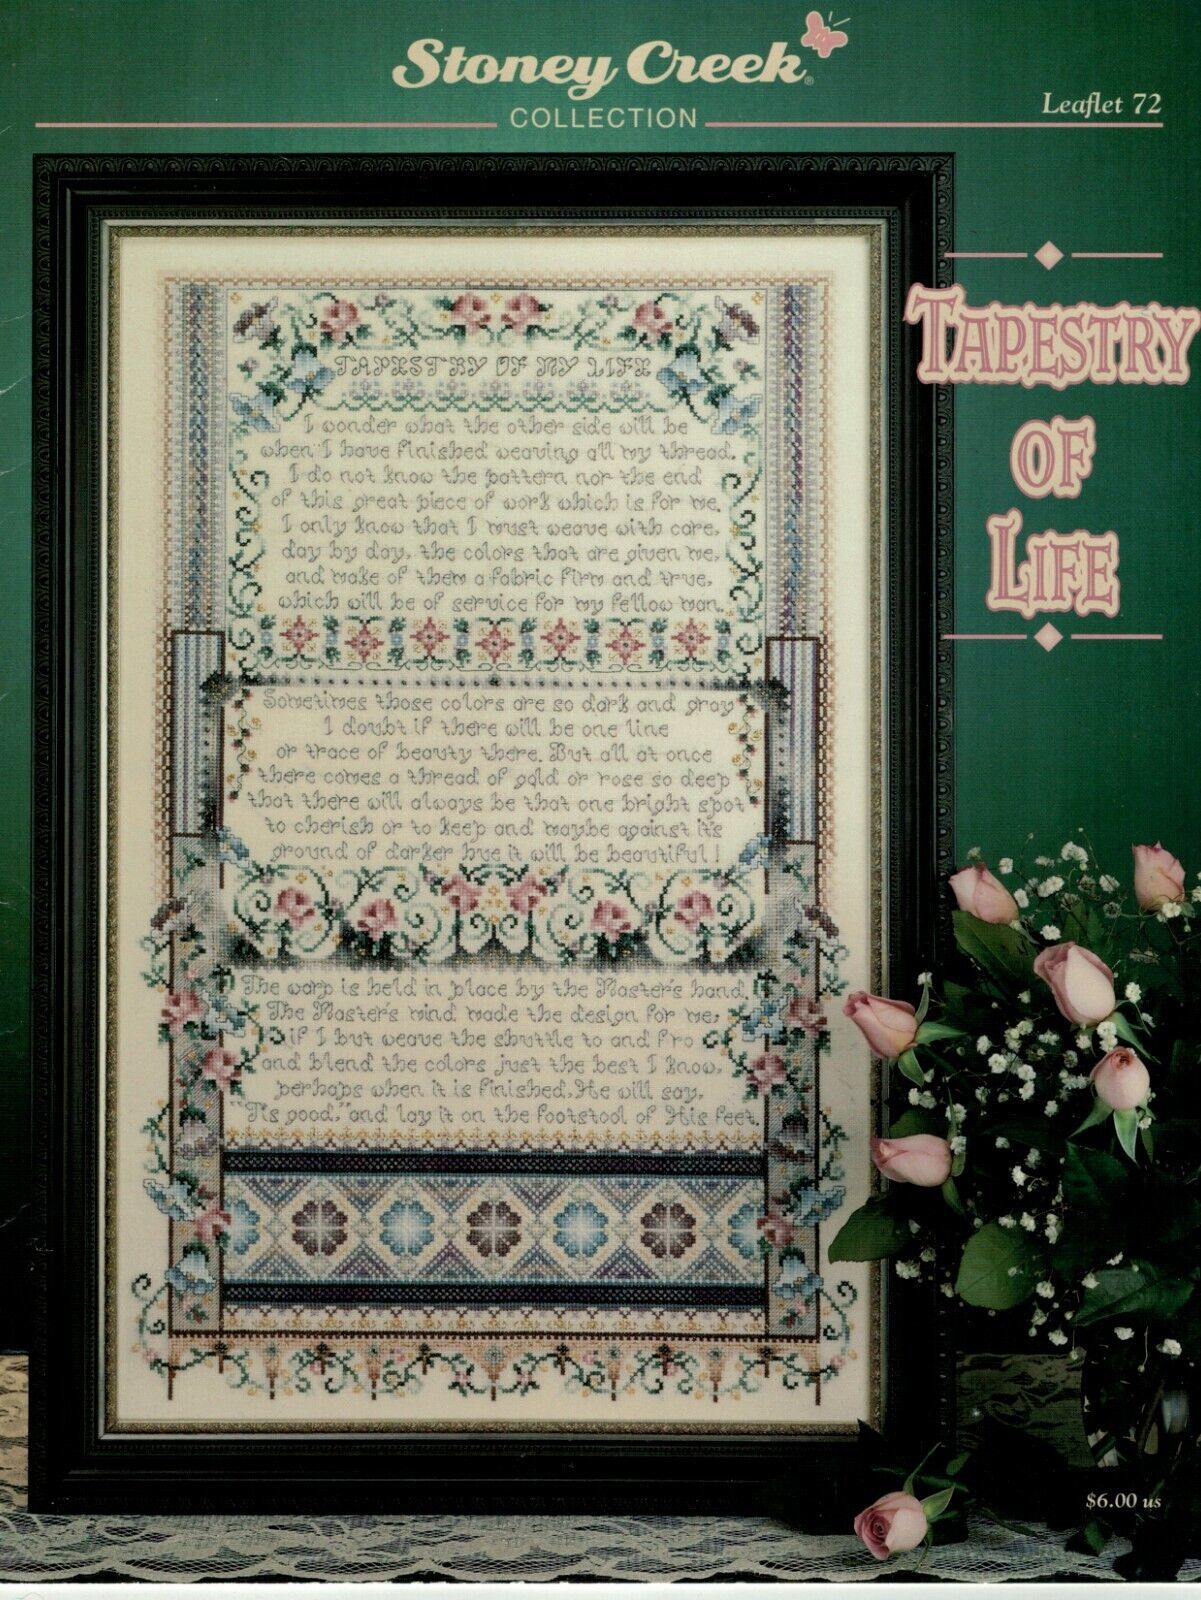 Stoney Creek®
COLLECTION
Leaflet 72
TAPESTRY
OF
LIFE
TAPESTRY OF MY LIFE
I wonder what the other side will be
when I have finished weaving all my thread.
I do not know the pattern nor the end
of this great piece of work which is for me.
I only know that I must weave with care,
day by day, the colors that are given me,
and make of them a fabric firm and true,
which will be of service for my fellow man.
Sometimes those colors are so dark and gray
I doubt if there will be one line
or trace of beauty there. But all at once
there comes a thread of gold or rose so deep
that there will always be that one bright spot
to cherish or to keep and maybe against it's
ground of darker hue it will be beautiful!
The warp is held in place by the Master's hand.
The Master's mind made the design for me;
if I but weave the shuttle to and fro
and blend the colors just the best I know,
perhaps when it is finished, He will say,
"'Tis good," and lay it on the footstool of His feet.
$6.00 us